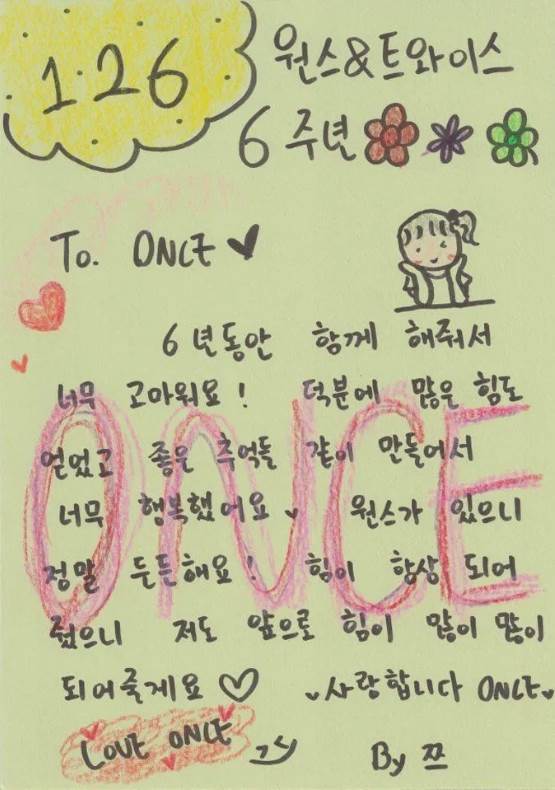 1.26
원스&트와이스
6주년
To. ONCE
6년동안 함께 해줘서
너무 고마워요! 덕분에 많은 힘도
얻었고 좋은 추억들 같이 만들어서
너무 행복했어요 원스가 있으니
정말 든든해요! 힘이 항상 되어
줬으니 저도 앞으로 힘이 많이 많이
되어줄게요 사랑합니다 ONCE
LOVE ONCE
By 쯔
ONCE